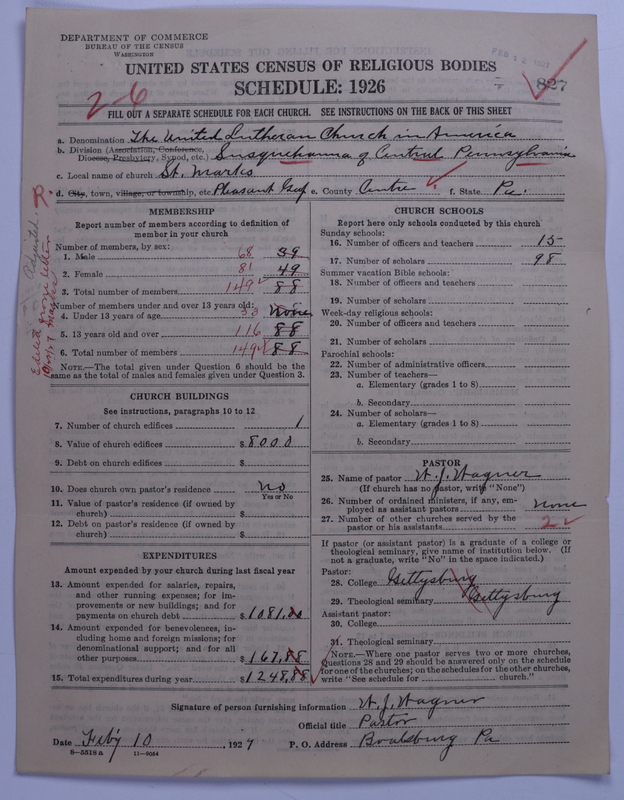 DEPARTMENT OF COMMERCE
BUREAU OF THE CENSUS
WASHINGTON
FEB 12 1927
UNITED STATES CENSUS OF RELIGIOUS BODIES
SCHEDULE: 1926
827
2-6
FILL OUT A SEPARATE SCHEDULE FOR EACH CHURCH. SEE INSTRUCTIONS ON THE BACK OF THIS SHEET
a. Denomination The United Lutheran Church in America
b. Division (Association, Conference,
Diocese, Presbytery, Synod, etc.) Susquehanna of Central Pennsylvania
c. Local name of church St. Marks
d. City, town, village, or township, etc. Pleasant Gap e. County Centre f. State Pa.
MEMBERSHIP
Report number of members according to definition of
member in your church
Number of members, by sex:
1. Male 68 39
2. Female 81 49
3. Total number of members 149 88
Number of members under and over 13 years old:
4. Under 13 years of age 33 None
5. 13 years old and over 116 88
6. Total number of members 149 88
NOTE.—The total given under Question 6 should be
same as the total of males and females given under Question 3.
CHURCH BUILDINGS
See instructions, paragraphs 10 to 12
7. Number of church edifices 1
8. Value of church edifices $ 8000
9. Debt on church edifices $
10. Does church own pastor's residence No
Yes or No
11. Value of pastor's residence (if owned by
church) $
12. Debt on pastor's residence (if owned by
church) $
EXPENDITURES
Amount expended by your church during last fiscal year
13. Amount expended for salaries, repairs,
and other running expenses; for im-
provements or new buildings; and for
payments on church debt $ 1081.00
14. Amount expended for benevolences, in-
cluding home and foreign missions; for
denominational support; and for all
other purposes $ 167.88
15. Total expenditures during year $ 1248.88
CHURCH SCHOOLS
Report here only schools conducted by this church
Sunday schools:
16. Number of officers and teachers 15
17. Number of scholars 98
Summer vacation Bible schools:
18. Number of officers and teachers
19. Number of scholars
Week-day religious schools:
20. Number of officers and teachers
21. Number of scholars
Parochial schools:
22. Number of administrative officers
23. Number of teachers—
a. Elementary (grades 1 to 8)
b. Secondary
24. Number of scholars—
a. Elementary (grades 1 to 8)
b. Secondary
PASTOR
25. Name of pastor W. J. Wagner
(If church has no pastor, write "None")
26. Number of ordained ministers, if any, em-
ployed as assistant pastors none
27. Number of other churches served by the
pastor or his assistants 2
If pastor (or assistant pastor) is a graduate of a college or
theological seminary, give name of institution below. (If
not a graduate, write "No" in the space indicated.)
Pastor:
28. College Gettysburg
29. Theological seminary Gettysburg
Assistant pastor:
30. College
31. Theological seminary
NOTE.—Where one pastor serves two or more churches,
Questions 28 and 29 should be answered only on the schedule
for one of the churches; on the schedules for the other churches,
write "See schedule for church."
Signature of person furnishing information W. J. Wagner
Official title Pastor
Date Feby 10, 1927 P. O. Address Boalsburg Pa
8-5518a 11-9054